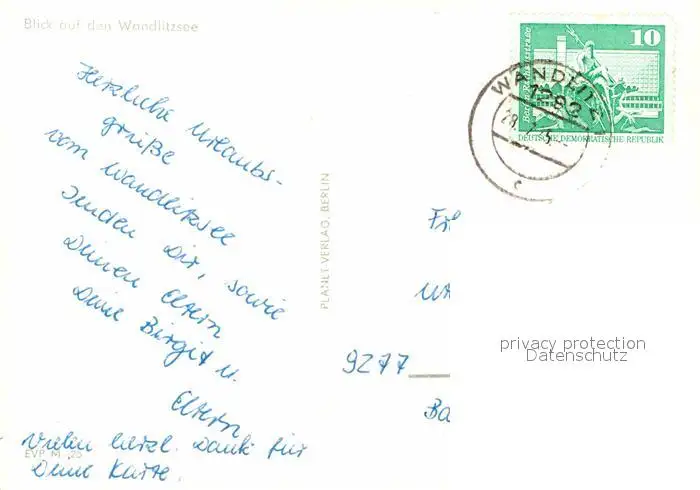 Blick auf den Wandlitzsee
Herzliche Urlaubs-
grüße
vom Wandlitzsee
senden Dir, sowie
Deinen Eltern
Deine Birgit u.
Eltern
Vielen herzl. Dank für
Deine Karte.
EVP M -,25
PLANET-VERLAG, BERLIN
10
DEUTSCHE DEMOKRATISCHE REPUBLIK
WANDLITZ
privacy protection
Datenschutz
9277
Ba